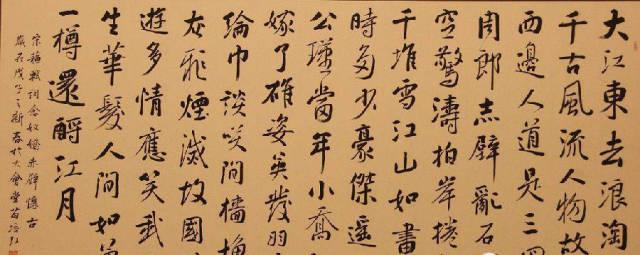 大江東去浪淘
千古風流人物故
西邊人道是三
周郎赤壁亂石
空驚濤拍岸捲
千堆雪江山如畫
時多少豪傑遥
公瑾當年小喬
嫁了雄姿英發羽
綸巾談笑間檣
灰飛煙滅故國
遊多情應笑我
生華髮人間如
一樽還酹江月
宋蘇軾詞念奴嬌赤壁懷古
歲在戊子之新春於大會堂